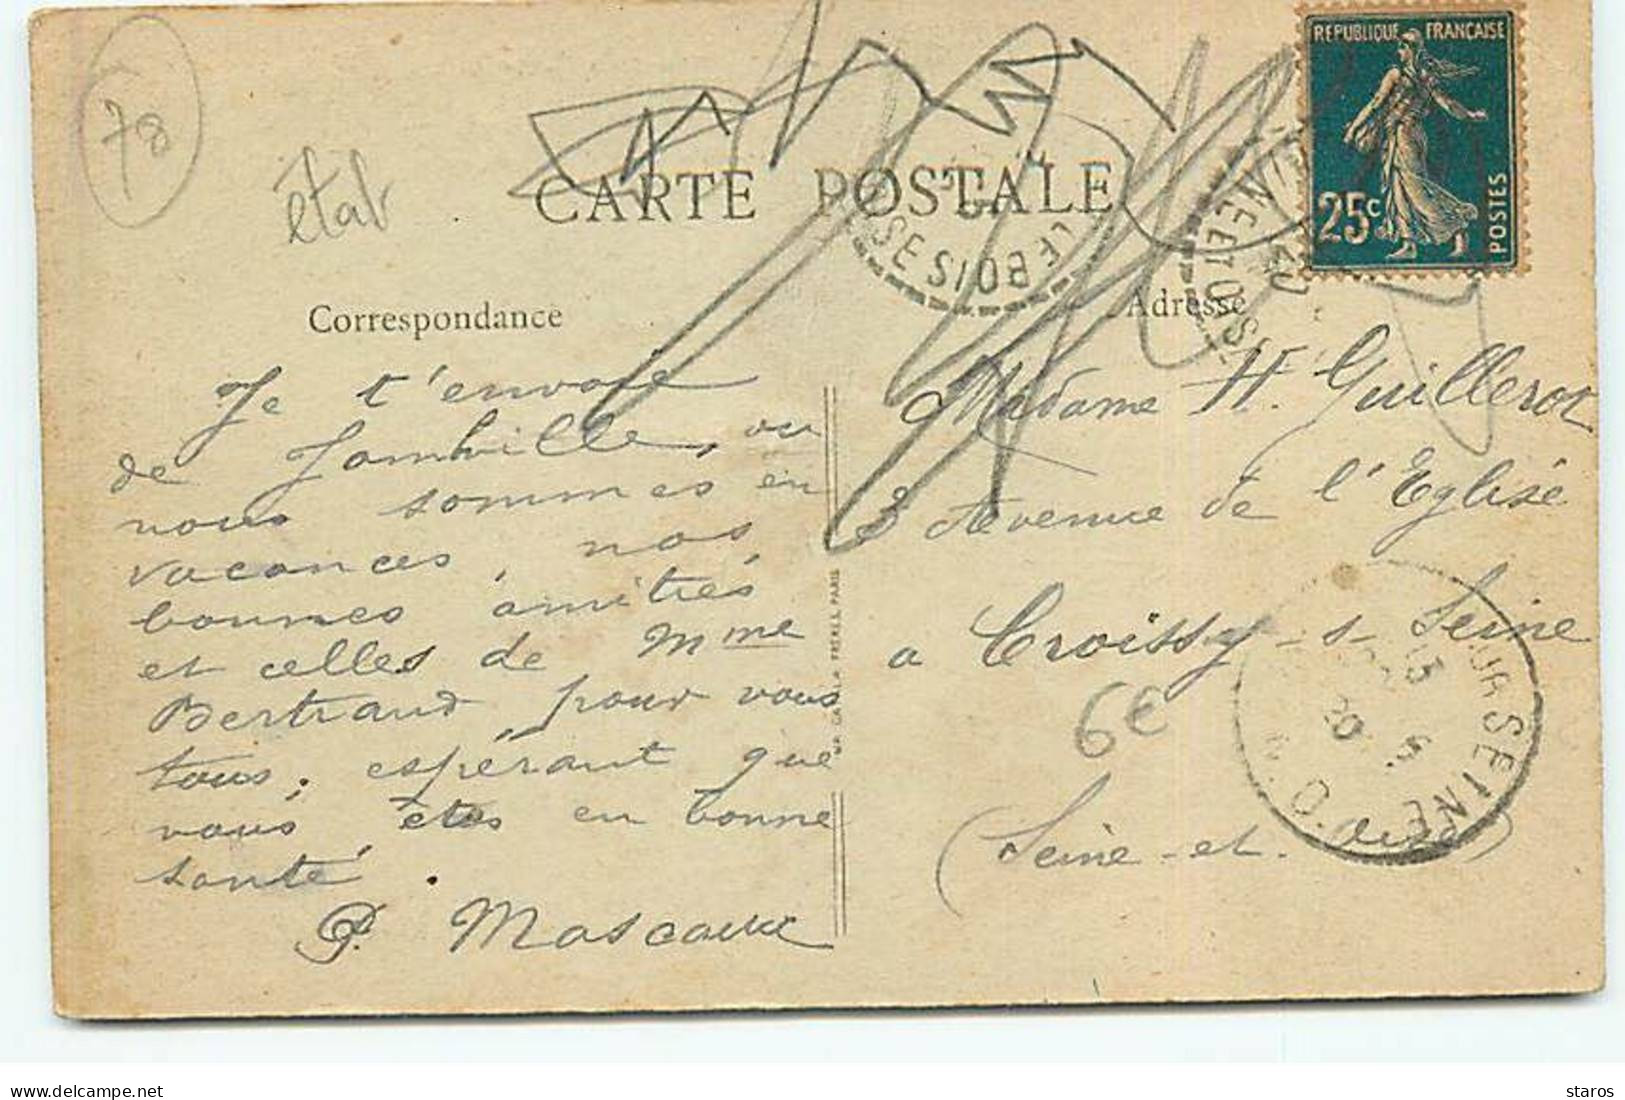 78
état
CARTE POSTALE
REPUBLIQUE FRANÇAISE
25c
POSTES
SES/BOIS
SEINE ET OISE
Correspondance
Adresse
Je t'envoie
de Jambville, ou
nous sommes en
vacances, nos
bonnes amitiés
et celles de Mme
Bertrand pour vous
tous, espérant que
vous êtes en bonne
santé.
P. Mascaux
FRÈRES, PARIS
Madame H. Guillerot
3 Avenue de l'Eglise
a Croissy-s-Seine
(Seine-et-Oise)
6€
SUR SEINE
15
20
staros